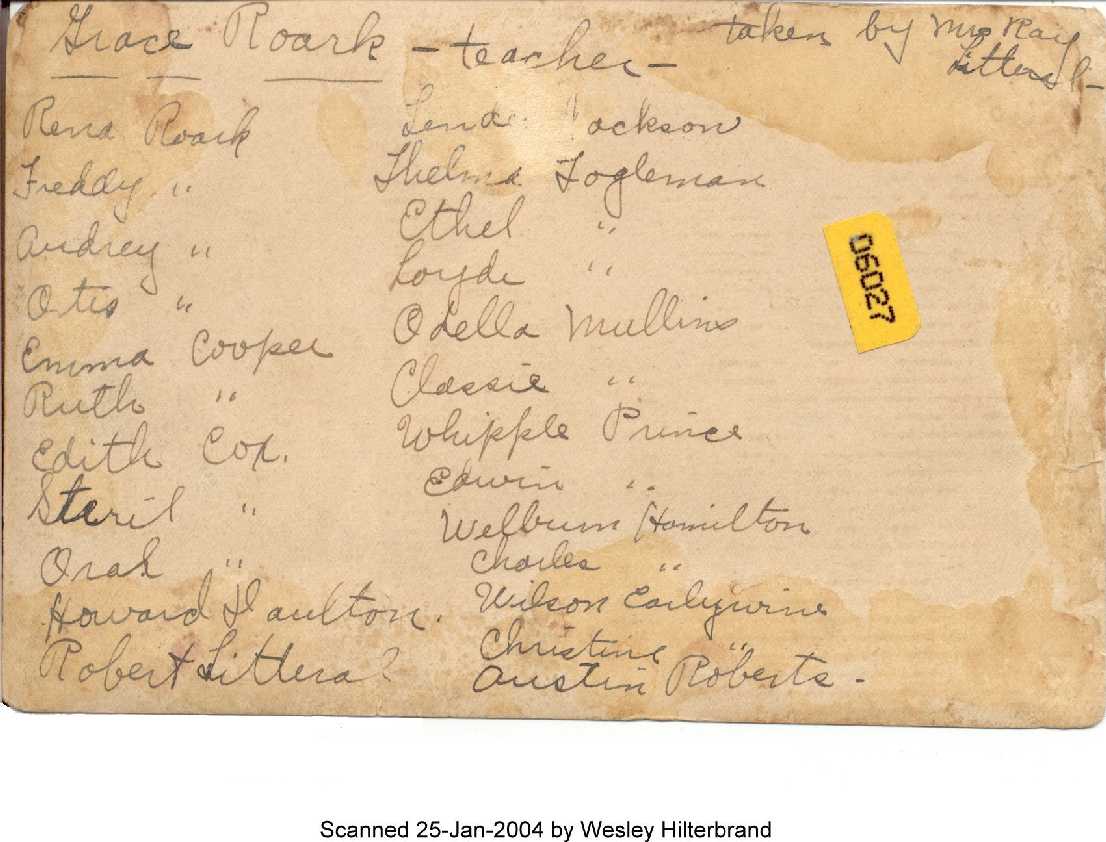 Grace Roark - teacher -
taken by Mrs Ray
Litteral -
Rena Roark
Freddy "
Audrey "
Otis "
Emma Cooper
Ruth "
Edith Cox.
Steril "
Orah "
Howard Daulton.
Robert Litteral
Jackson
Thelma Fogleman
Ethel "
Loyde "
Odella Mullins
Classie "
Whipple Prince
Edwin "
Welburn Hamilton
Charles "
Wilson Earlywine
Christine "
Austin Roberts -
06027
Scanned 25-Jan-2004 by Wesley Hilterbrand